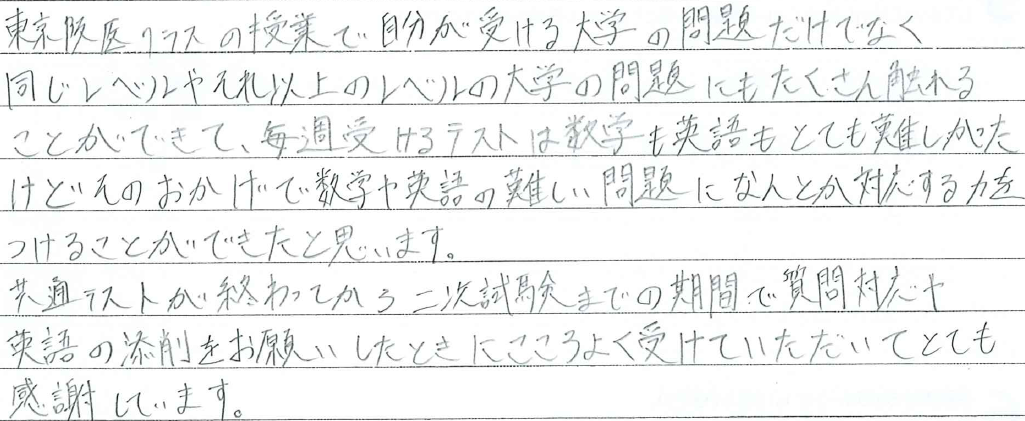 東京阪医クラスの授業で自分が受ける大学の問題だけでなく
同じレベルやそれ以上のレベルの大学の問題にもたくさん触れる
ことができて、毎週受けるテストは数学も英語もとても難しかった
けどそのおかげで数学や英語の難しい問題になんとか対応する力を
つけることができたと思います。
共通テストが終わってから二次試験までの期間で質問対応や
英語の添削をお願いしたときにこころよく受けていただいてとても
感謝しています。